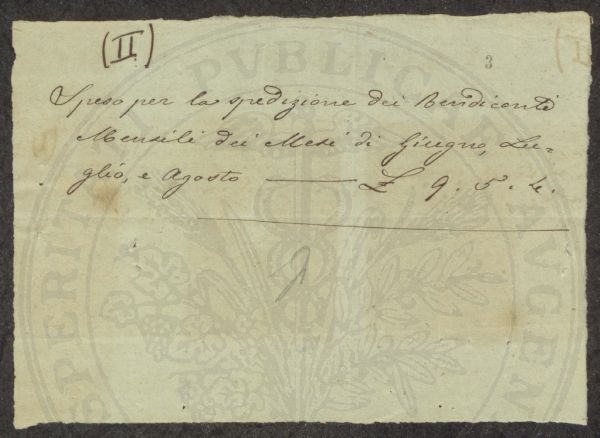 (II)
3
Speso per la spedizione dei Rendiconti
Mensili dei Mesi di Giugno, Lu-
glio, e Agosto — £ 9. 5. 4.
PROSPERITATI PUBLICAE AVGEN